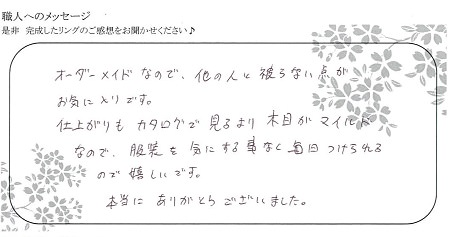 職人へのメッセージ
是非 完成したリングのご感想をお聞かせください♪
オーダーメイドなので、他の人と被らない点が
お気に入りです。
仕上がりも カタログで見るより 木目が マイルド
なので、服装を気にする事なく毎日つけられる
ので嬉しいです。
本当に ありがとうございました。